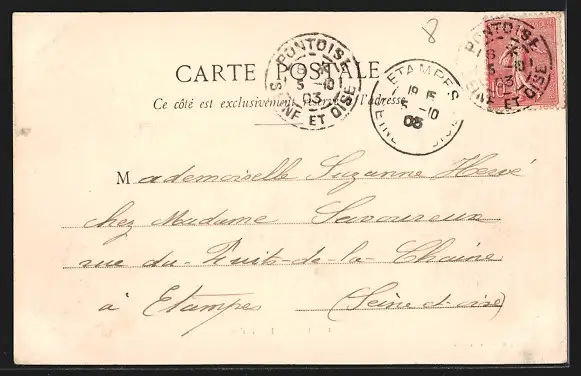 8
CARTE POSTALE
Ce côté est exclusivement réservé à l'adresse
PONTOISE
5 -10
03
SEINE ET OISE
ETAMPES
5 -10
03
SEINE OISE
PONTOISE
5 -10
03
SEINE ET OISE
10
Mademoiselle Suzanne Hervé
chez Madame Savoureux
rue du-Puits-de-la-Chaine
à Etampes (Seine-et-oise)